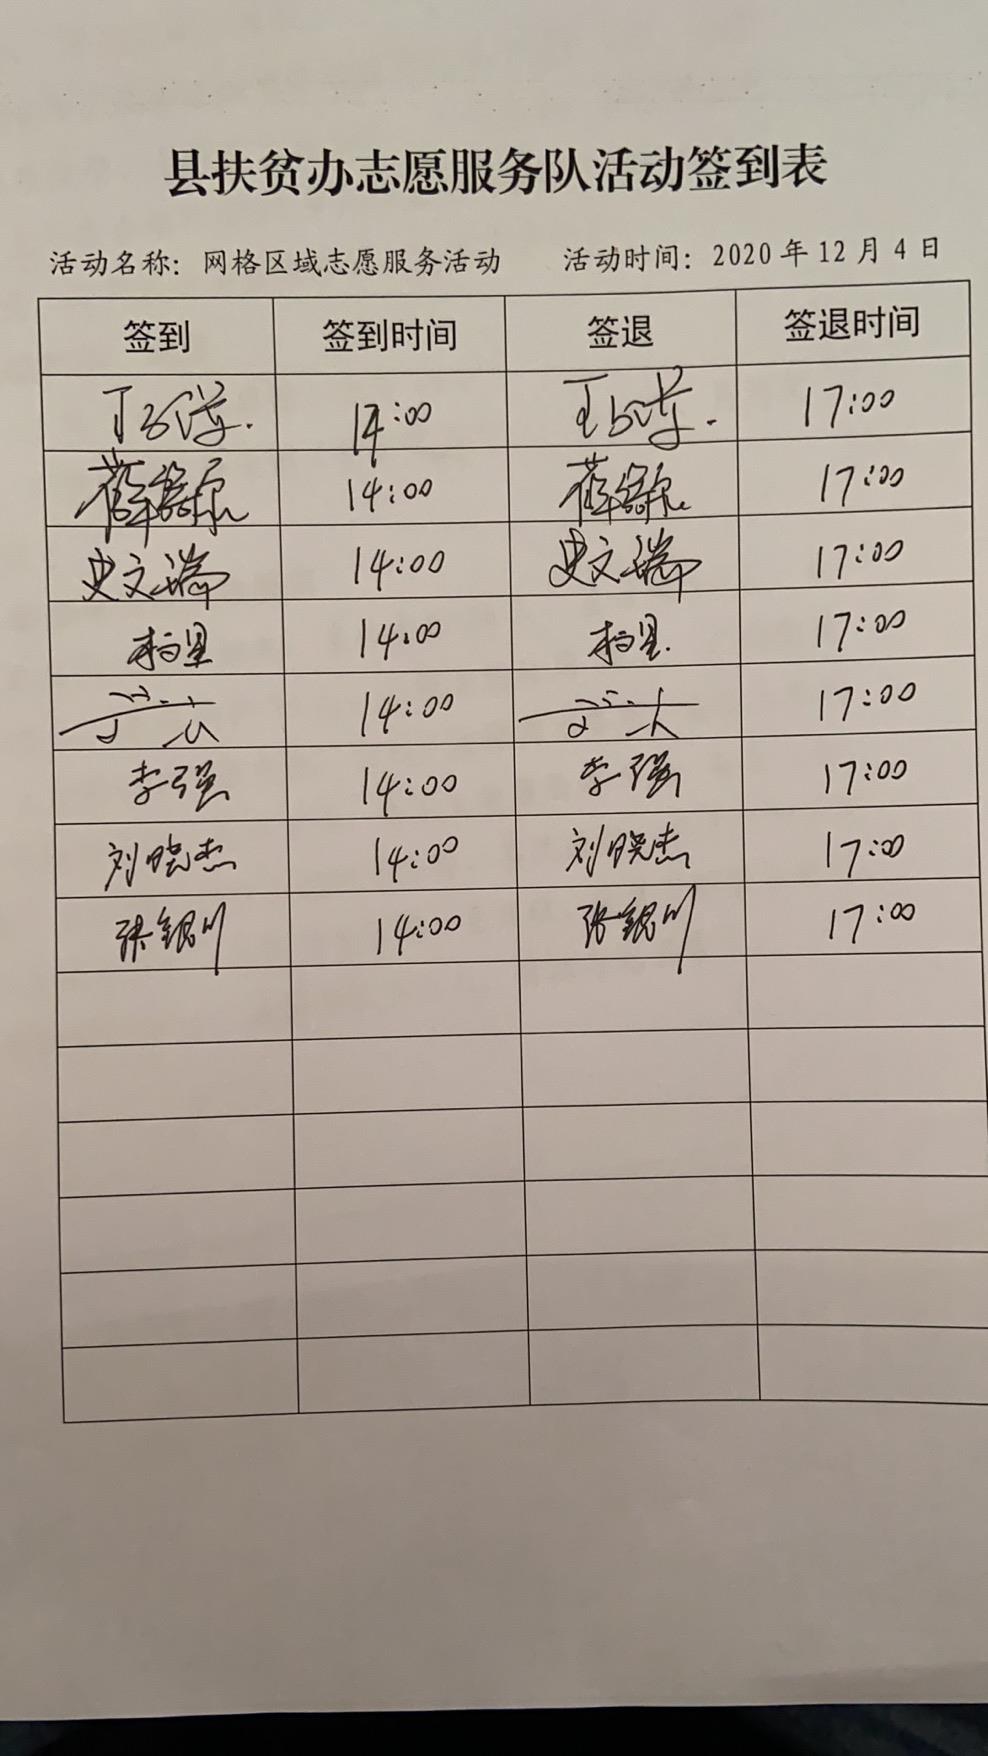 县扶贫办志愿服务队活动签到表
活动名称：网格区域志愿服务活动 活动时间：2020年12月4日
签到 签到时间 签退 签退时间
14:00 17:00
14:00 17:00
史文瑞 14:00 史文瑞 17:00
14:00 17:00
14:00 17:00
李强 14:00 李强 17:00
刘晓杰 14:00 刘晓杰 17:00
张银川 14:00 张银川 17:00